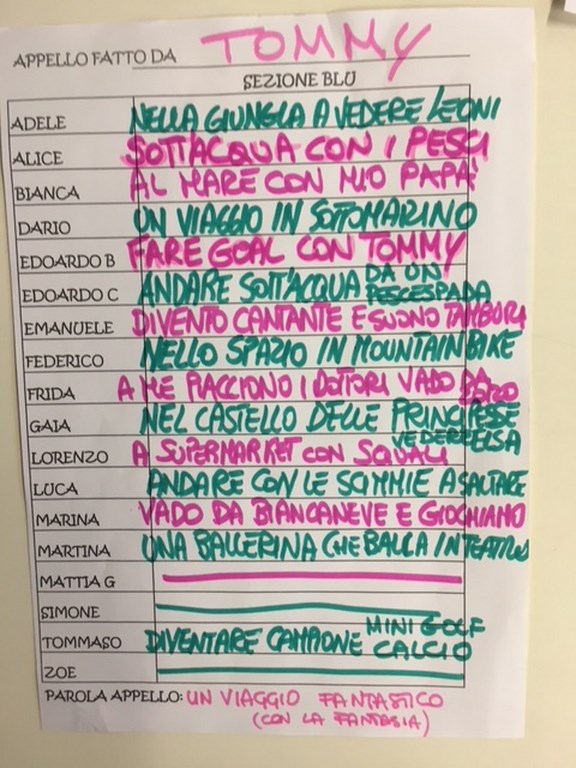 APPELLO FATTO DA TOMMY
SEZIONE BLU
ADELE NELLA GIUNGLA A VEDERE LEONI
ALICE SOTT'ACQUA CON I PESCI
BIANCA AL MARE CON MIO PAPA'
DARIO UN VIAGGIO IN SOTTOMARINO
EDOARDO B FARE GOAL CON TOMMY
EDOARDO C ANDARE SOTT'ACQUA DA UN PESCESPADA
EMANUELE DIVENTO CANTANTE E SUONO TAMBURI
FEDERICO NELLO SPAZIO IN MOUNTAIN BIKE
FRIDA A ME PIACCIONO I DOTTORI VADO DA
GAIA NEL CASTELLO DELLE PRINCIPESSE VEDERE ELSA
LORENZO A SUPERMARKET CON SQUALI
LUCA ANDARE CON LE SCIMMIE A SALTARE
MARINA VADO DA BIANCANEVE E GIOCHIAMO
MARTINA UNA BALLERINA CHE BALLA IN TEATRO
MATTIA G
SIMONE
TOMMASO DIVENTARE CAMPIONE MINI GOLF CALCIO
ZOE
PAROLA APPELLO: UN VIAGGIO FANTASTICO
(CON LA FANTASIA)